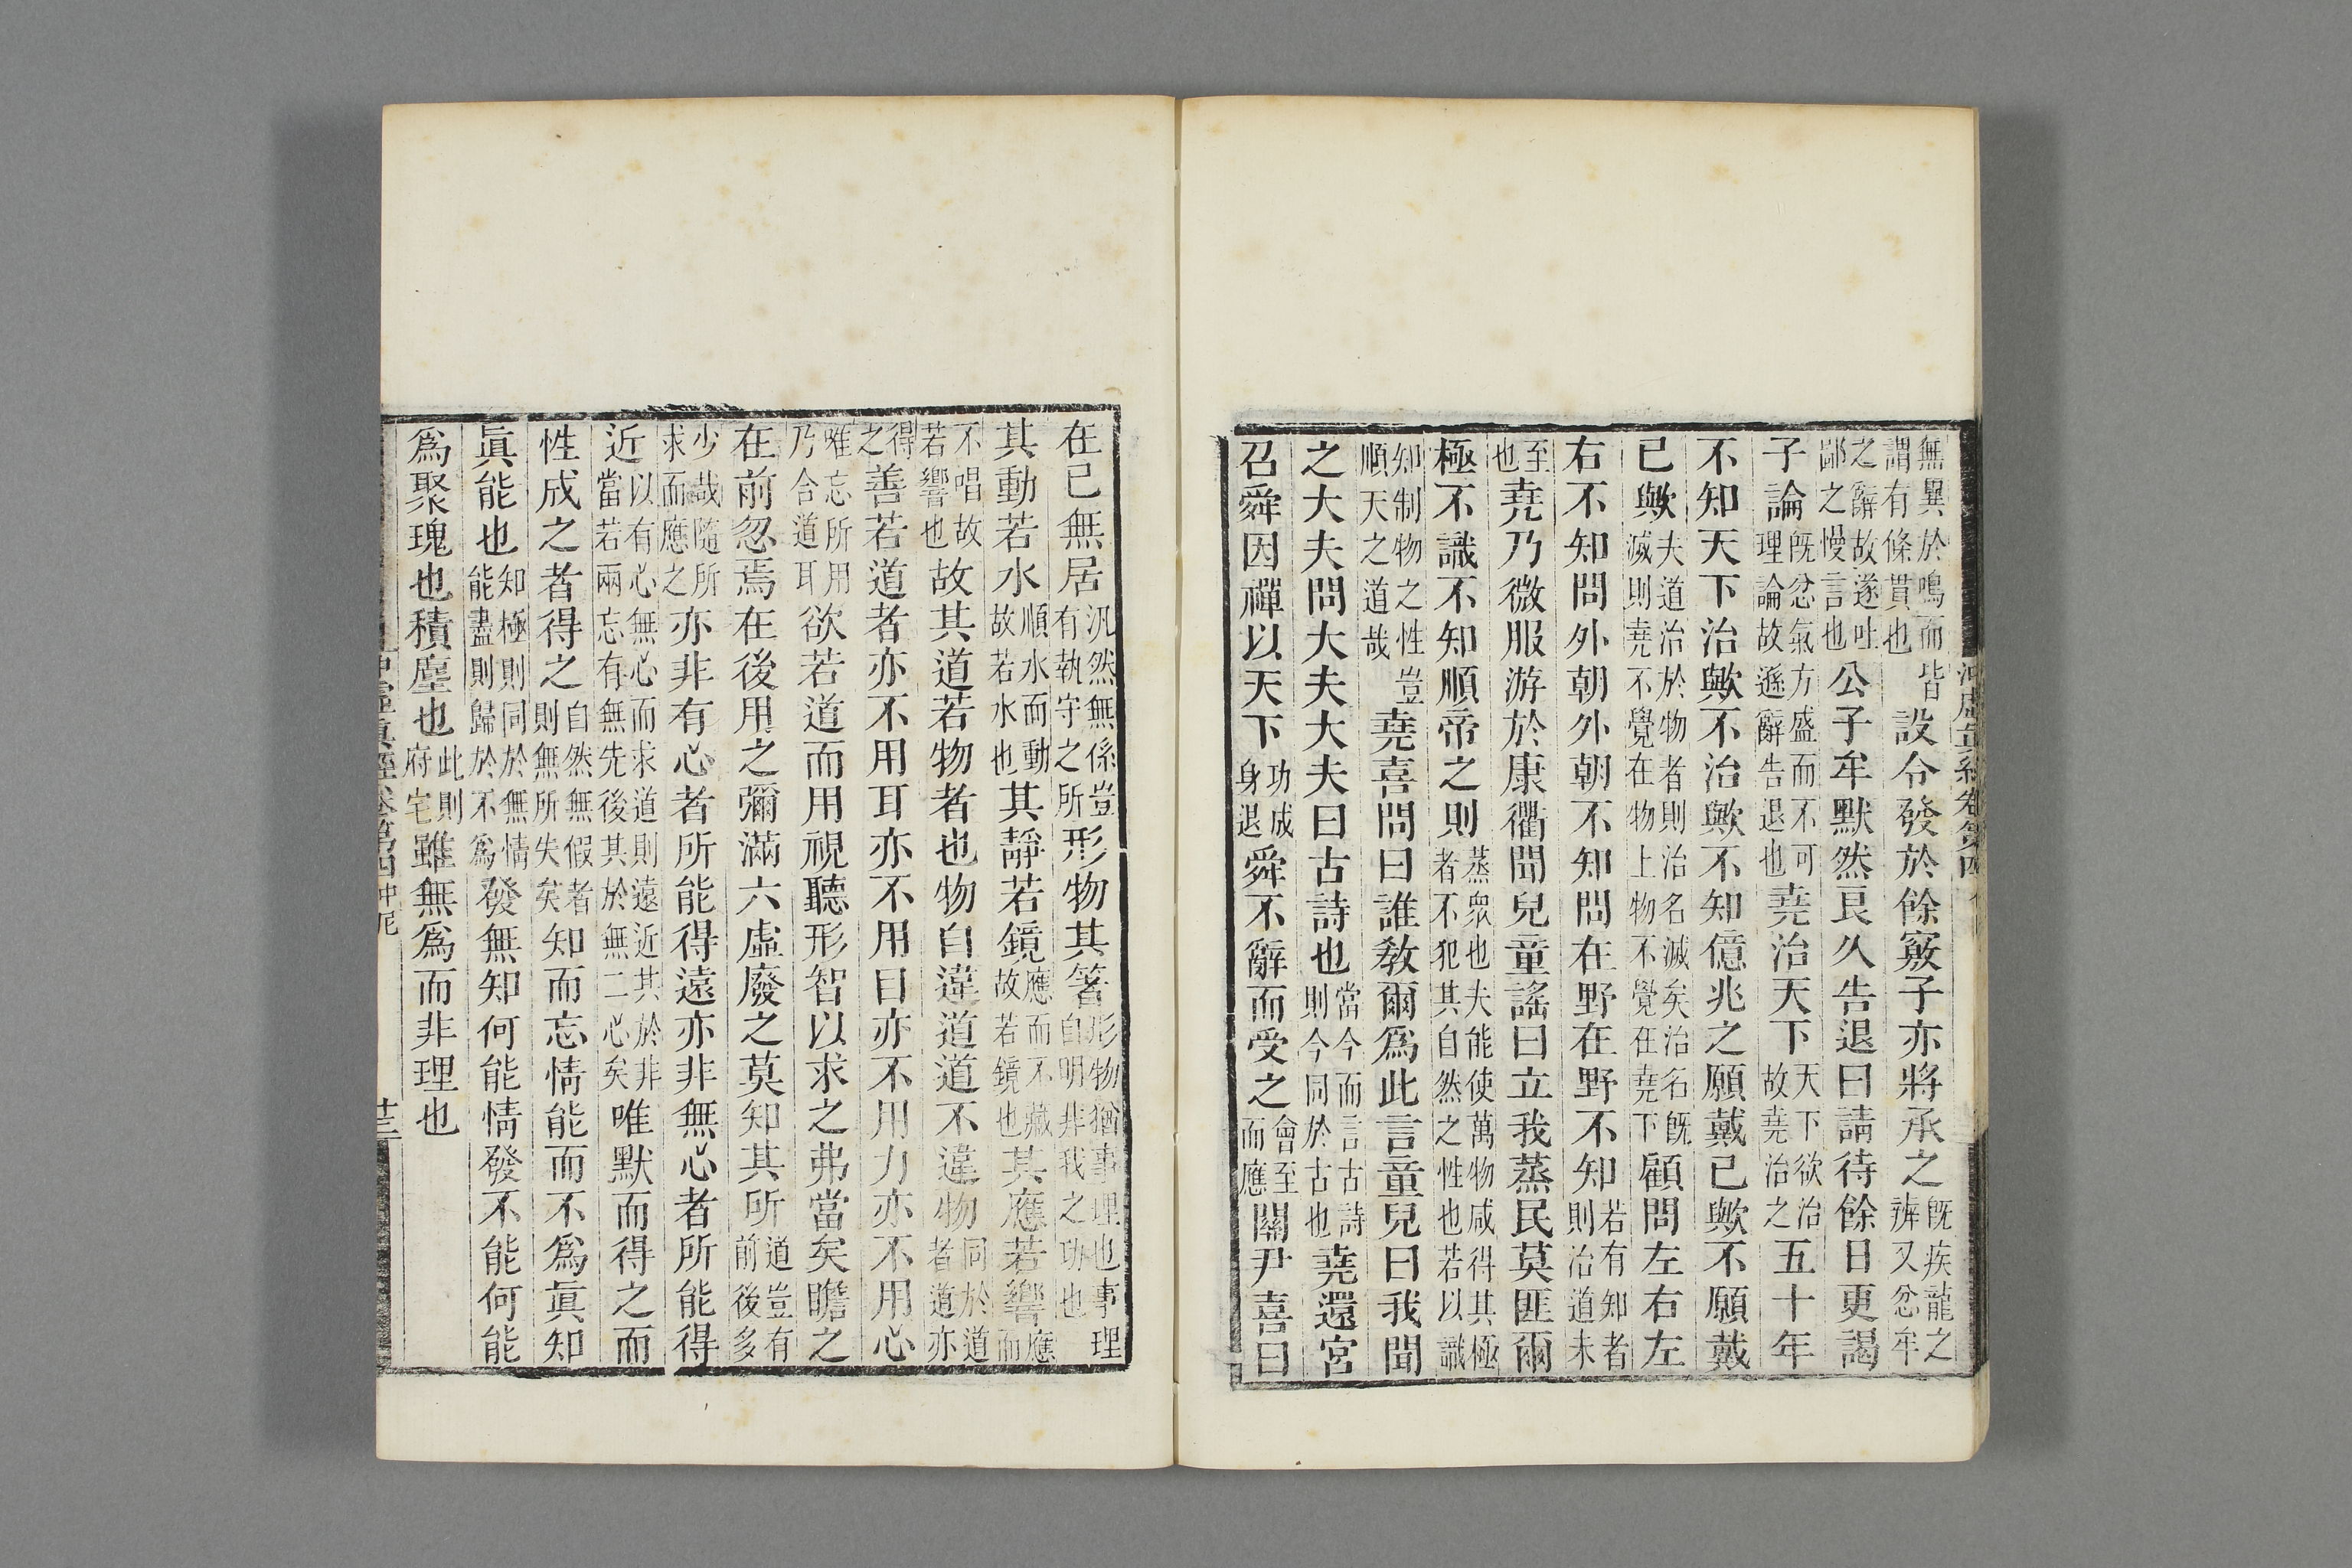 無異於鳴而皆謂有條貫也設令發於餘竅子亦將承之既疾龍之辨又忿牟
之辭故遂吐鄙之慢言也公子牟默然良久告退曰請待餘日更謁
子論既忿氣方盛而不可理論故遜辭告退也堯治天下天下欲治故堯治之五十年
不知天下治歟不治歟不知億兆之願戴已歟不願戴
已歟夫道治於物者則治名滅矣治名既滅則堯不覺在物上物不覺在堯下顧問左右左
右不知問外朝外朝不知問在野在野不知若有知者則治道未
至也堯乃微服游於康衢聞兒童謠曰立我蒸民莫匪爾
極不識不知順帝之則蒸衆也夫能使萬物咸得其極者不犯其自然之性也若以識
知制物之性豈順天之道哉堯喜問曰誰敎爾爲此言童兒曰我聞
之大夫問大夫大夫曰古詩也當今而言古詩則今同於古也堯還宮
召舜因禪以天下功成身退舜不辭而受之會至而應關尹喜曰
在已無居汎然無係豈有執守之所形物其箸形物猶事理也事理自明非我之功也
其動若水順水而動故若水也其靜若鏡應而不藏故若鏡也其應若響應而
不唱故若響也故其道若物者也物自違道道不違物同於道者道亦
得之善若道者亦不用耳亦不用目亦不用力亦不用心
唯忘所用乃合道耳欲若道而用視聽形智以求之弗當矣瞻之
在前忽焉在後用之彌滿六虛廢之莫知其所道豈有前後多
少哉隨所求而應之亦非有心者所能得遠亦非無心者所能得
近以有心無心而求道則遠近其於非當若兩忘有無先後其於無二心矣唯默而得之而
性成之者得之自然無假者則無所失矣知而忘情能而不爲眞知
眞能也知極則同於無情能盡則歸於不爲發無知何能情發不能何能
爲聚塊也積塵也此則府宅雖無爲而非理也
沖虛眞經卷第四仲尼 十三